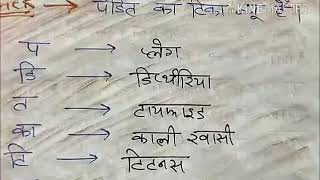 पंडित का टिका
प → प्लेग
डि → डिप्थीरिया
त → टायफाइड
का → काली खासी
टि → टिटनस